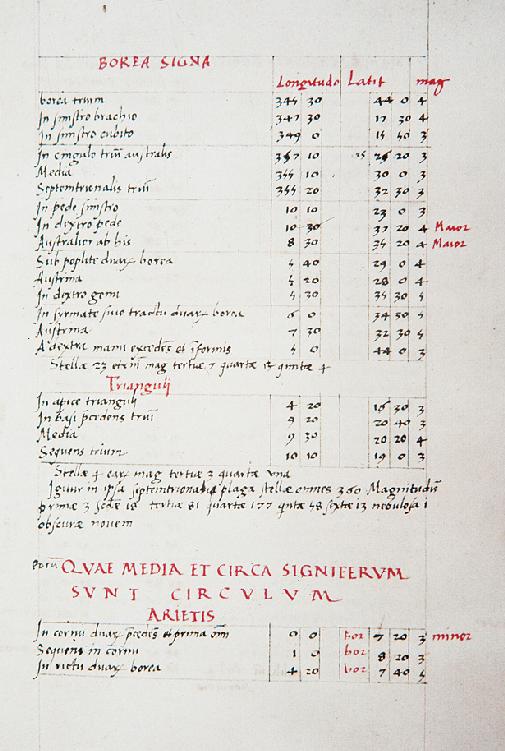 BOREA SIGNA
Longitudo Latit mag
borea trium 345 30 44 0 4
In sinistro brachio 347 30 17 30 4
In sinistro cubito 349 0 15 50 3
In cingulo triũ australis 357 10 25 20 3
Media 355 10 30 0 3
Septemtrionalis triũ 355 20 32 30 3
In pede sinistro 10 10 23 0 3
In dextro pede 10 30 37 20 4 Maior
Australior ab his 8 30 35 20 4 Maior
Sub poplite duaȝ borea 5 40 29 0 4
Austrina 5 20 28 0 4
In dextro genu 5 30 35 30 5
In syrmate siue tractu duaȝ borea 6 0 34 50 5
Austrina 7 30 32 30 5
A dextra manu excedẽs et iformis 5 0 44 0 3
Stellæ 23 mag tertiæ 7 quartæ 12 quintæ 4
Trianguli
In apice trianguli 4 20 16 30 3
In basi pcedens triũ 9 20 20 40 3
Media 9 30 20 20 4
Sequens trium 10 10 19 0 3
Stellæ 4 earȝ mag tertiæ 3 quartæ vna
Igitur in ipsa septemtrionali plaga stellæ omnes 360 Magnitudinis
primæ 3 secũdæ 18 tertiæ 81 quartæ 177 quĩtæ 58 sextæ 13 nebulosa 1
obscuræ nouem
QVAE MEDIA ET CIRCA SIGNIFERVM
SVNT CIRCVLVM
ARIETIS
In cornu duaȝ pcedẽs et prima oĩm 0 0 bor 7 20 3 minor
Sequens in cornu 1 0 bor 8 20 3
In rictu duaȝ borea 4 20 bor 7 40 5